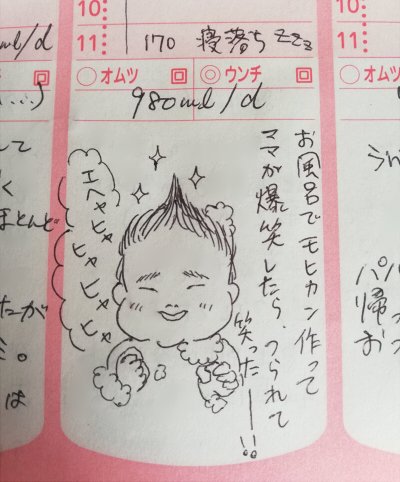 ml/d
10
11
170 寝落ち zzz
オムツ
ウンチ
980ml/d
お風呂でモヒカン作って
ママが爆笑したら、つられて
笑ったー!!
エヘヒャ
ヒャヒャヒャ
...)
して
く
ほとんど
たが
は
10
11
オムツ
パパ
帰っ
おっ